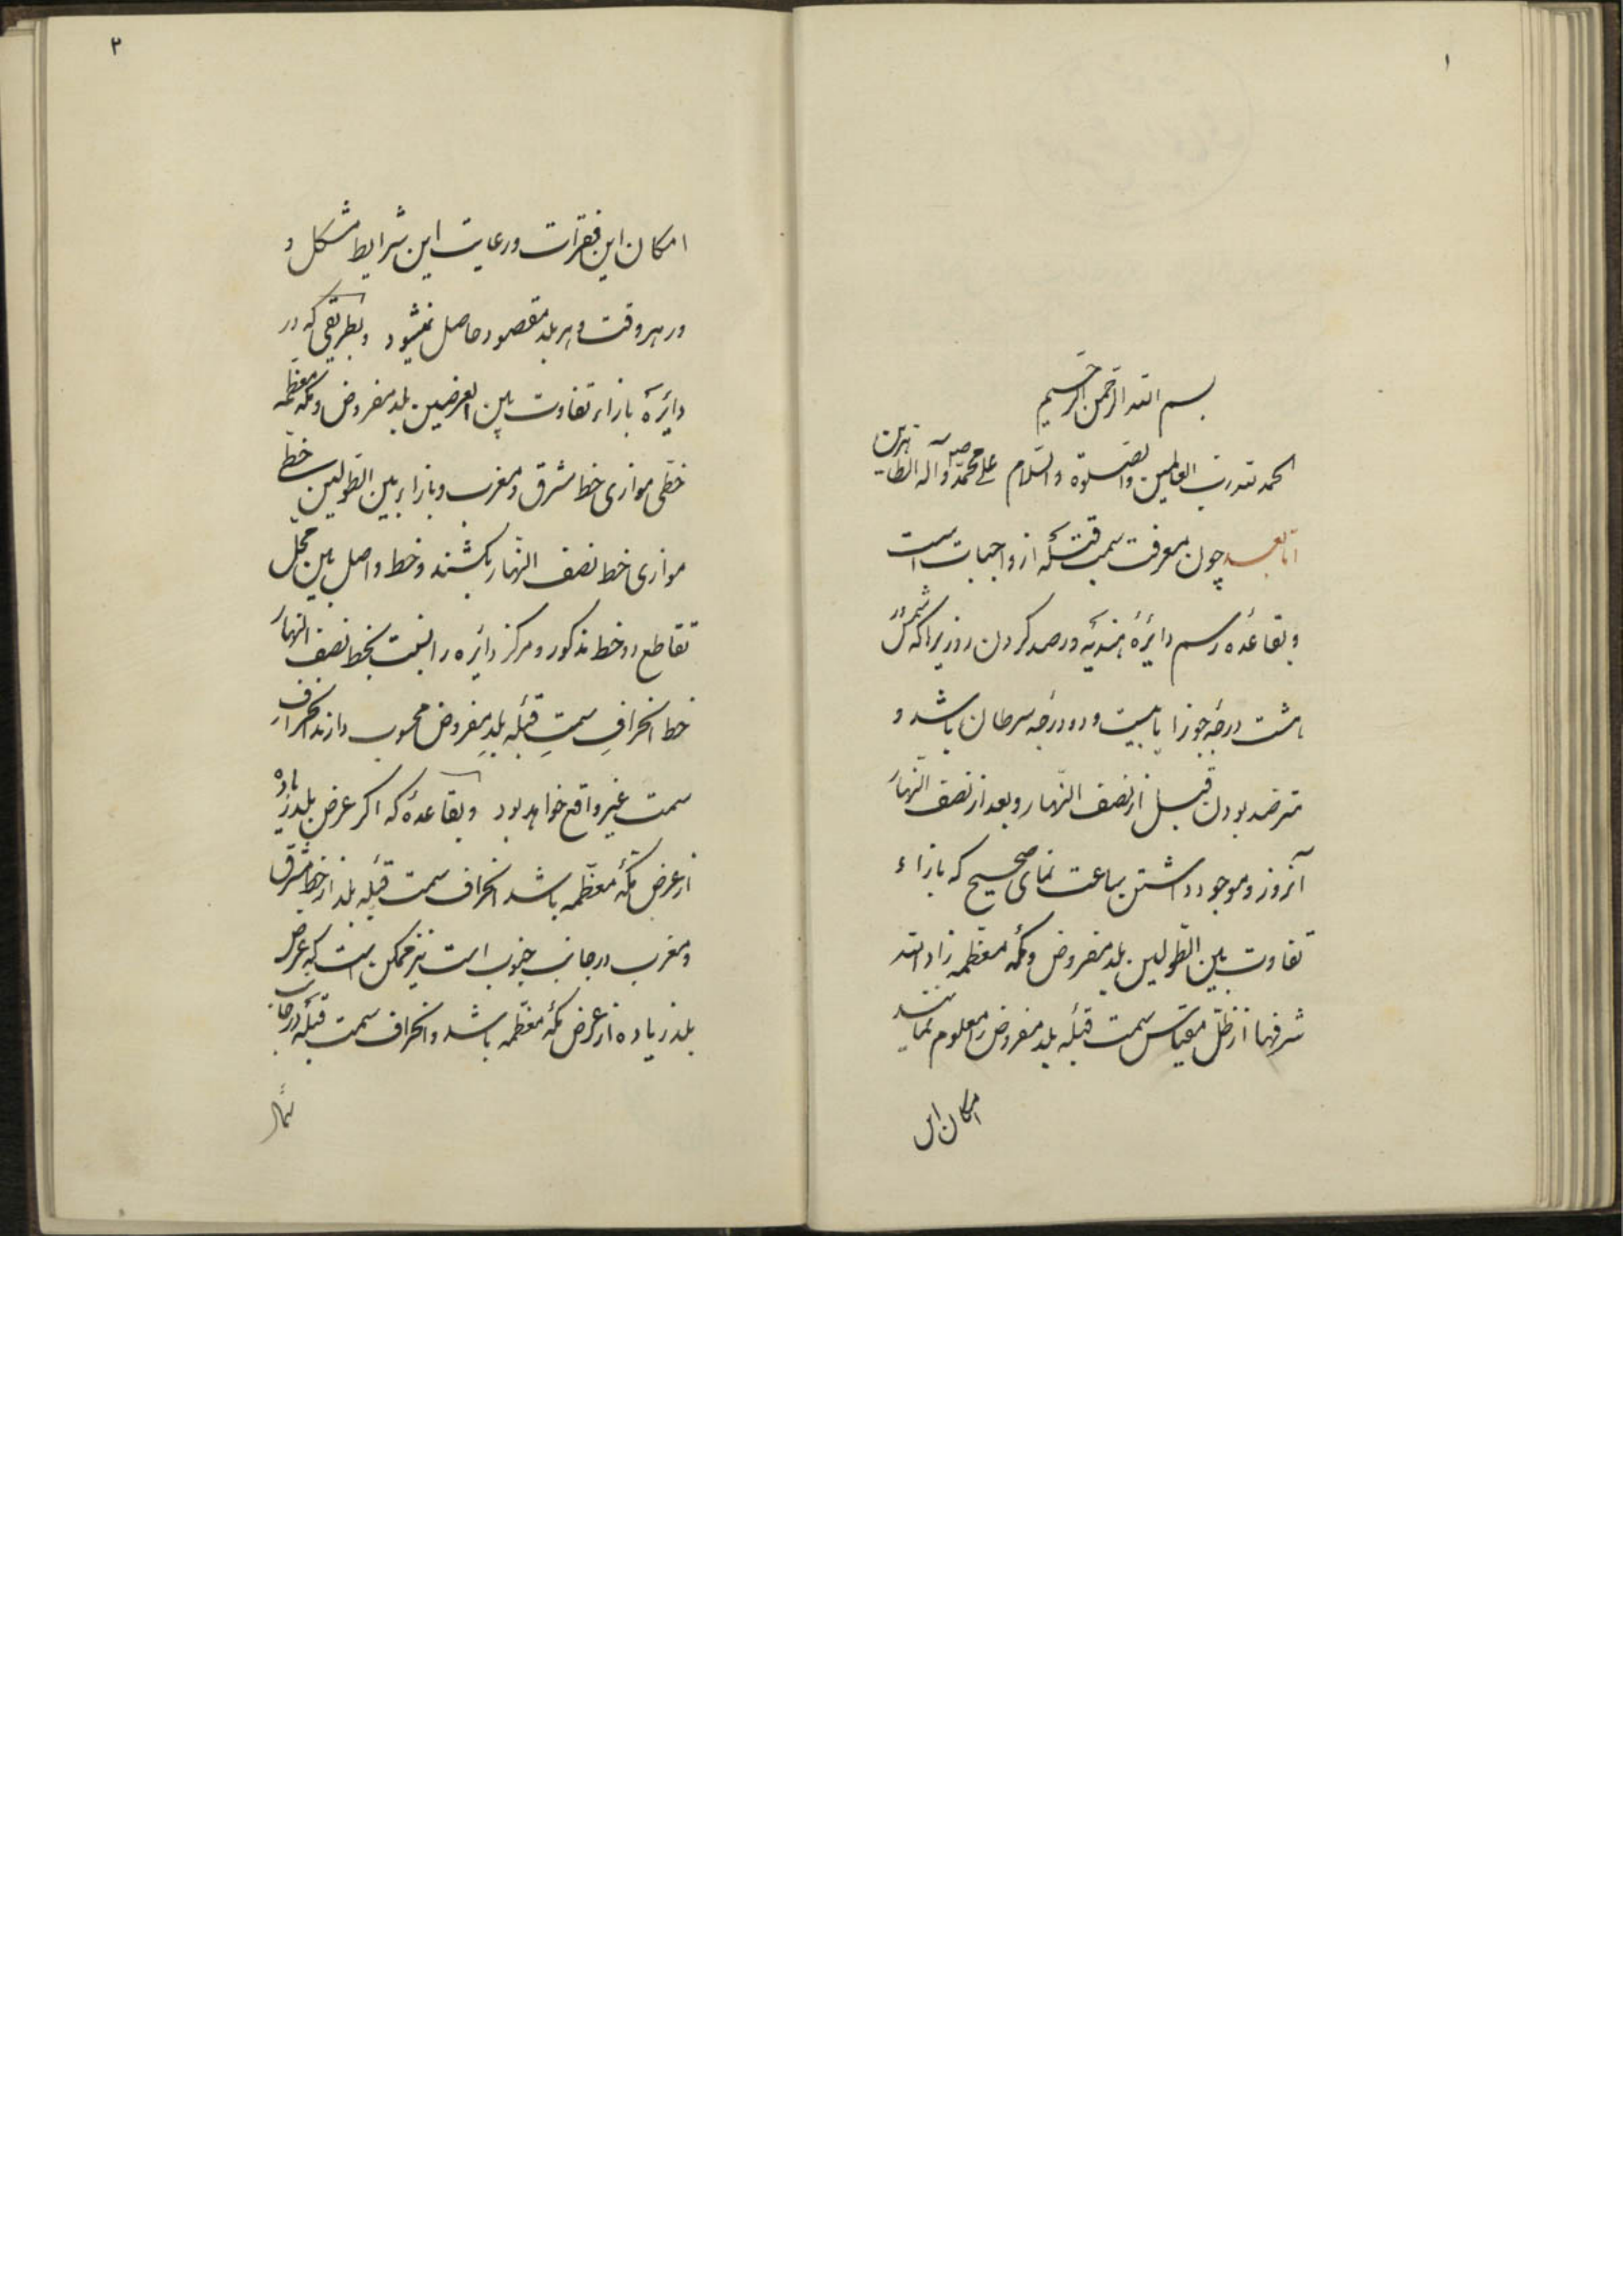 ۱
بسم الله الرحمن الرحیم
الحمد لله رب العالمین والصلوة والسلام علی محمد وآله الطاهرین
امّا بعد چون معرفت سمت قبله از واجبات است
و بقاعدهٔ رسم دایرهٔ هندیّه و رصد کردن روزیرا که شمس در
هشت درجهٔ جوزا یا بیست و دو درجهٔ سرطان باشد و
مترصّد بودن قبل از نصف النّهار و بعد از نصف النّهار
آنروز و موجود داشتن ساعت نمای صحیح که بازاء
تفاوت بین الطّولین بلد مفروض و مکّه معظّمه زاد الله
شرفها از ظلّ مقیاس سمت قبلهٔ بلد مفروض را معلوم نمایند
امکان این
۲
امکان این فقرات و رعایت این شرایط مشکل و
در هر وقت و هر بلد مقصود حاصل نمیشود و بطریقی که در
دایرهٔ بازاء تفاوت بین العرضین بلد مفروض و مکّه معظّمه
خطّی موازی خط مشرق و مغرب و بازاء بین الطّولین خطّی
موازی خط نصف النّهار بکشند و خط واصل بین محلّ
تقاطع دو خط مذکور و مرکز دایره را نسبت بخط نصف النّهار
خط انحرافِ سمتِ قبله بلدِ مفروض محسوب دارند انحراف از
سمت غیر واقع خواهد بود و بقاعدهٔ که اگر عرض بلد زیاده
از عرض مکّهٔ معظّمه باشد انحراف سمت قبله بلد از خط مشرق
و مغرب در جانب جنوب است نیز ممکن است که عرض
بلد زیاده از عرض مکّهٔ معظّمه باشد و انحراف سمت قبله در جانب
شمال